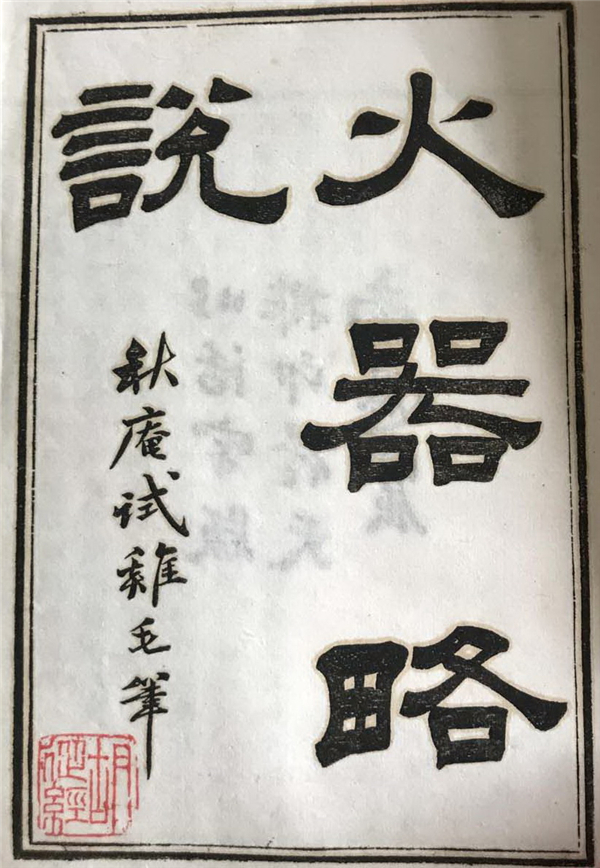 火器略
說
秋庵試雞毛筆
胡
從經